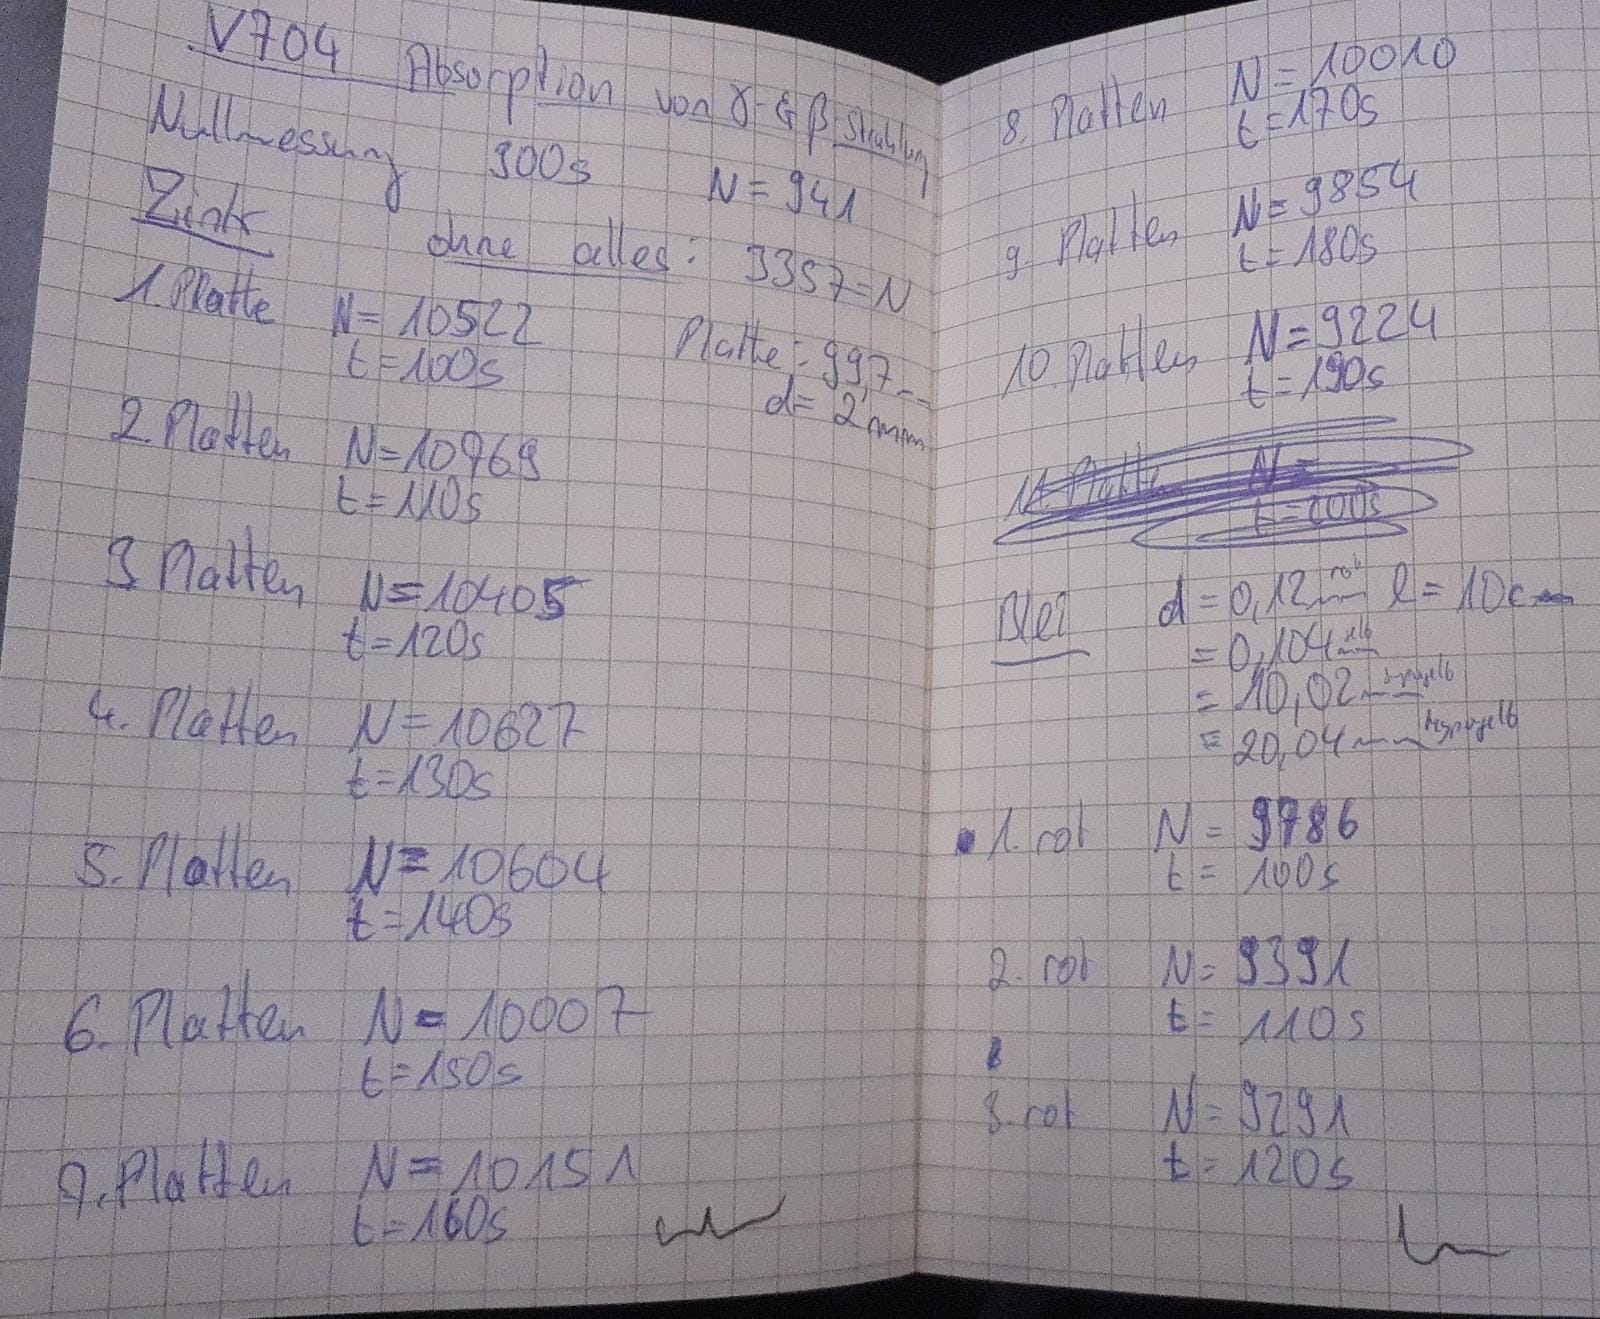 V704 Absorption von γ- & β Strahlung
Nullmessung 300s N = 941
Zink ohne alles: 3357=N
1. Platte N= 10522
t=100s
Platte: 99,7
d= 2mm
2. Platten N=10969
t=110s
3 Platten N=10405
t=120s
4. Platten N=10627
t=130s
5. Platten N=10604
t=140s
6. Platten N=10007
t=150s
7. Platten N=10151
t=160s
8. Platten N=10010
t=170s
9. Platten N=9854
t=180s
10. Platten N=9224
t=190s
11. Platten N=
t=200s
Blei d=0,12mm rot l=10cm
=0,104mm
= 10,02mm
= 20,04mm
1. rot N= 9786
t= 100s
2. rot N= 9391
t= 110s
3. rot N= 9291
t= 120s